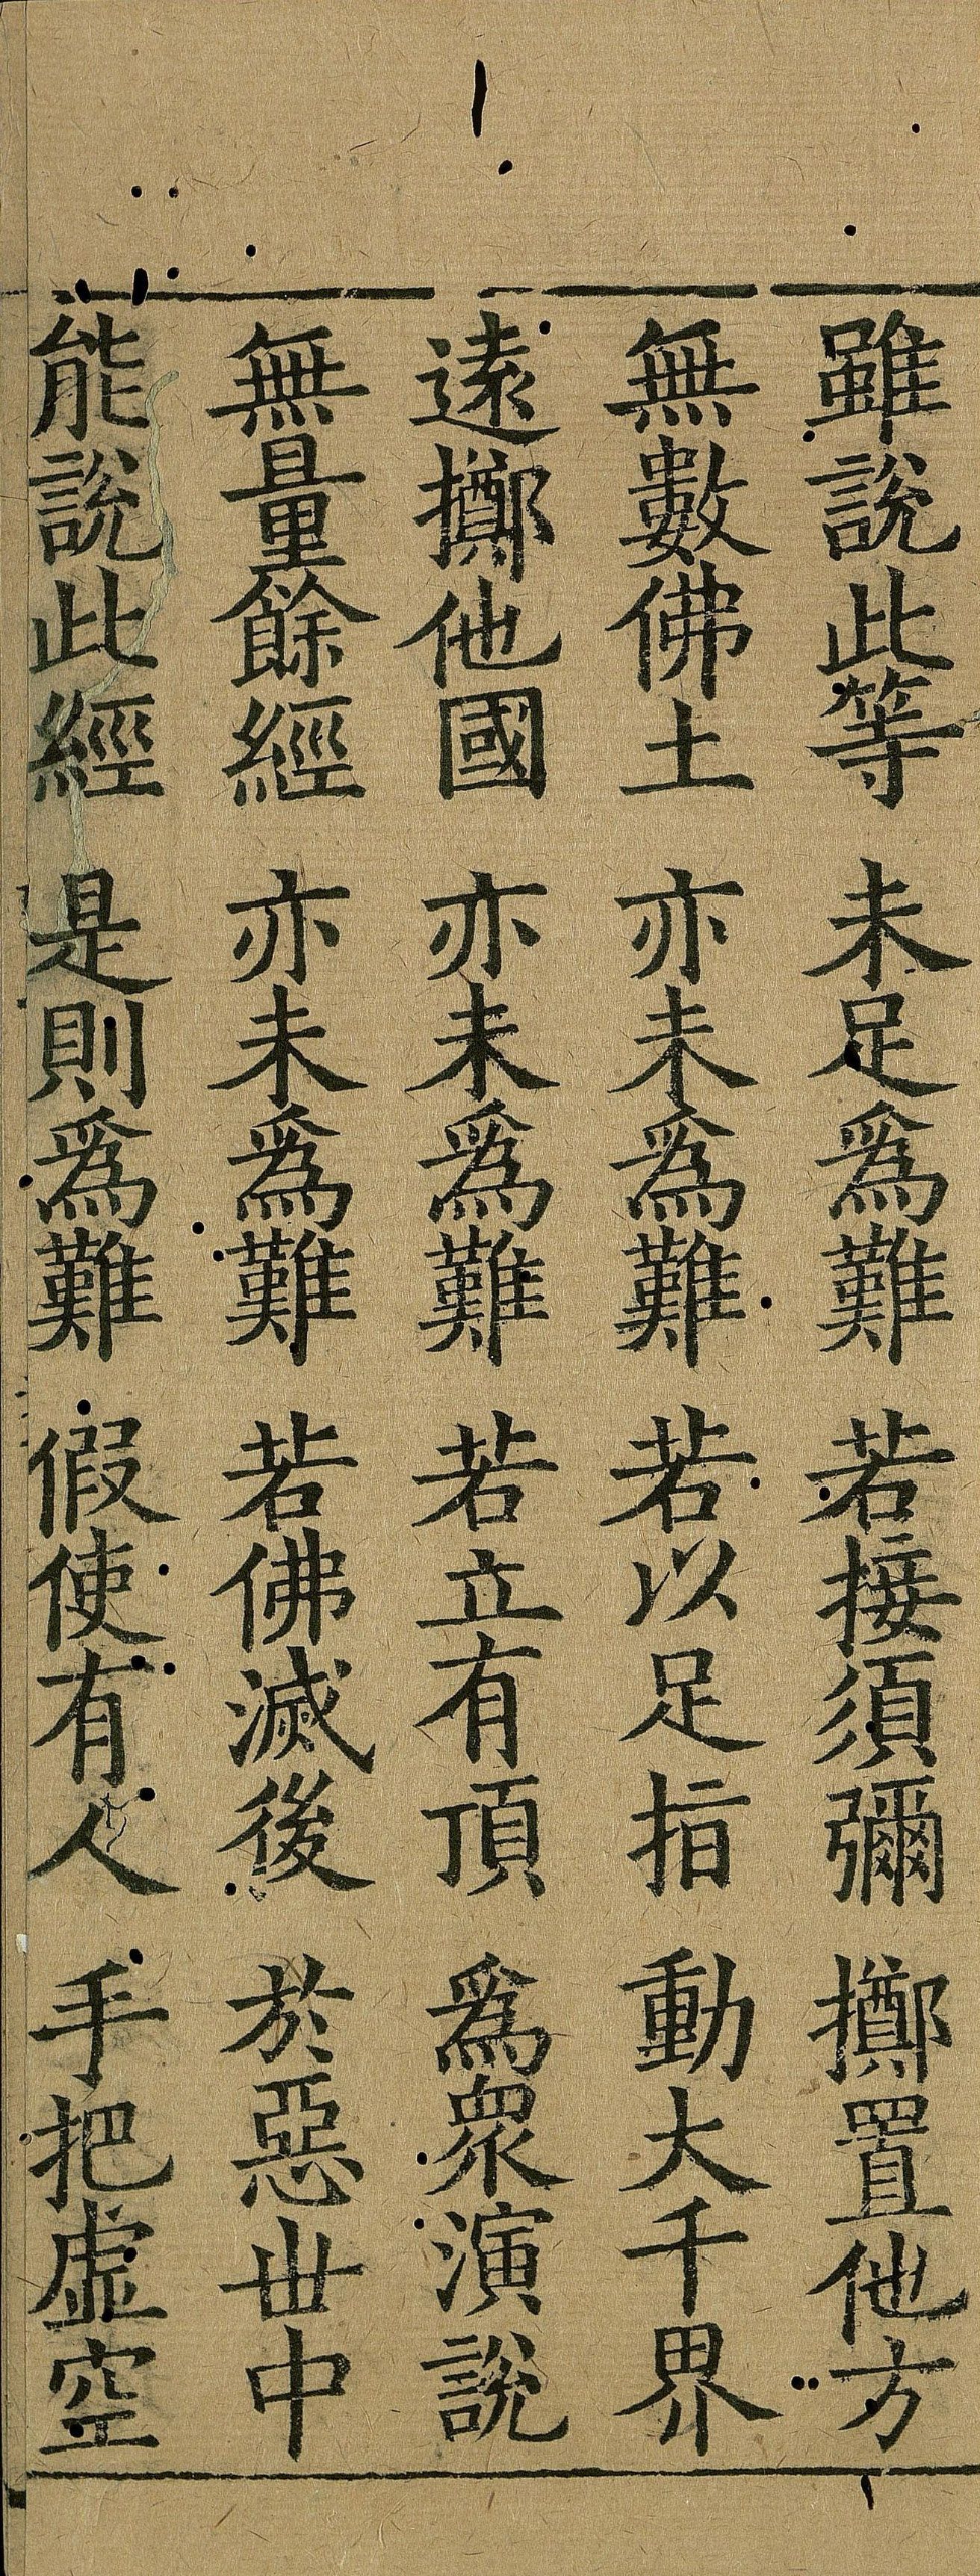 雖說此等 未足爲難 若接須彌 擲置他方
無數佛土 亦未爲難 若以足指 動大千界
遠擲他國 亦未爲難 若立有頂 爲衆演說
無量餘經 亦未爲難 若佛滅後 於惡世中
能說此經 是則爲難 假使有人 手把虛空